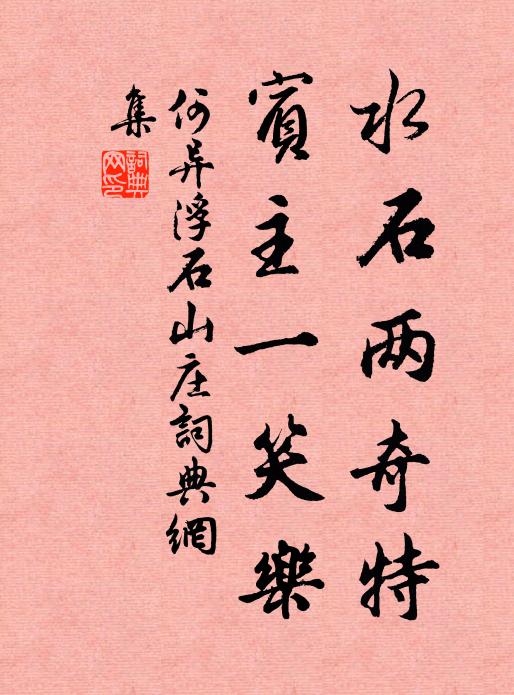 水石两奇特
賓主一笑樂
何异浮石山庄詞典網
集
詞典网印